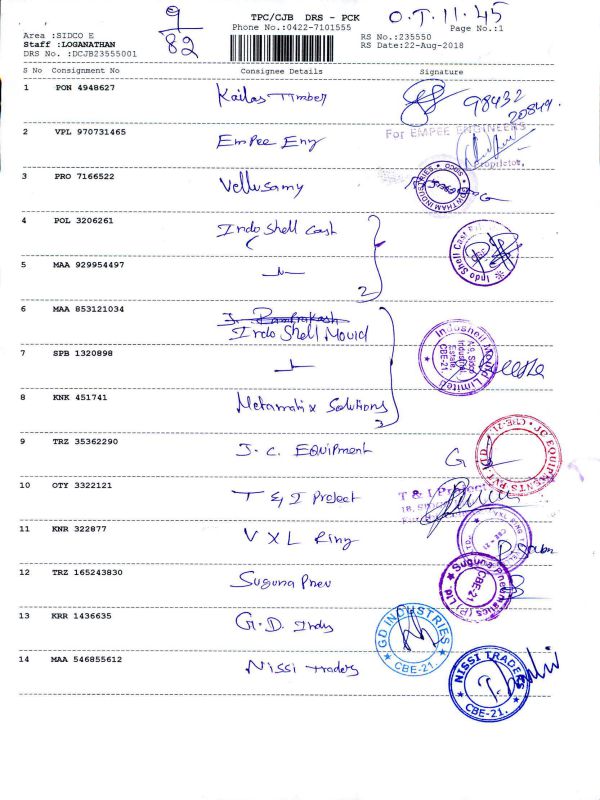 9/82
TPC/CJB DRS - PCK
O.T. 11.45
Phone No.:0422-7101555
Page No.:1
Area :SIDCO E
RS No.:235550
Staff :LOGANATHAN
RS Date:22-Aug-2018
DRS No. :DCJB23555001
S No Consignment No Consignee Details Signature
1 PON 4948627 Kailas Timber 98432
20849.
2 VPL 970731465 EmPee Eng For EMPEE ENGINEERS
Proprietor,
3 PRO 7166522 Vellusamy GOWTHAM INDUSTRIES
4 POL 3206261 Indo Shell Cast Indo Shell Cast
5 MAA 929954497 -"-
2
6 MAA 853121034
Indo Shell Mould Indoshell Mould Limited
A-9, Sidco Industrial Estate, CBE-21.
7 SPB 1320898 -"-
8 KNK 451741 Metamatix Solutions
3
9 TRZ 35362290 J. C. EQUIPMENT JC EQUIPMENTS PVT LTD CBE-21.
10 OTY 3322121 T & I Project T & I Project
11 KNR 322877 V X L Ring VXL RING CBE - 21
12 TRZ 165243830 Suguna Pneu Suguna Pneumatics (P) Ltd. CBE-21
13 KRR 1436635 G.D. Indus GD INDUSTRIES CBE-21.
14 MAA 546855612 Nissi Traders NISSI TRADERS CBE-21.